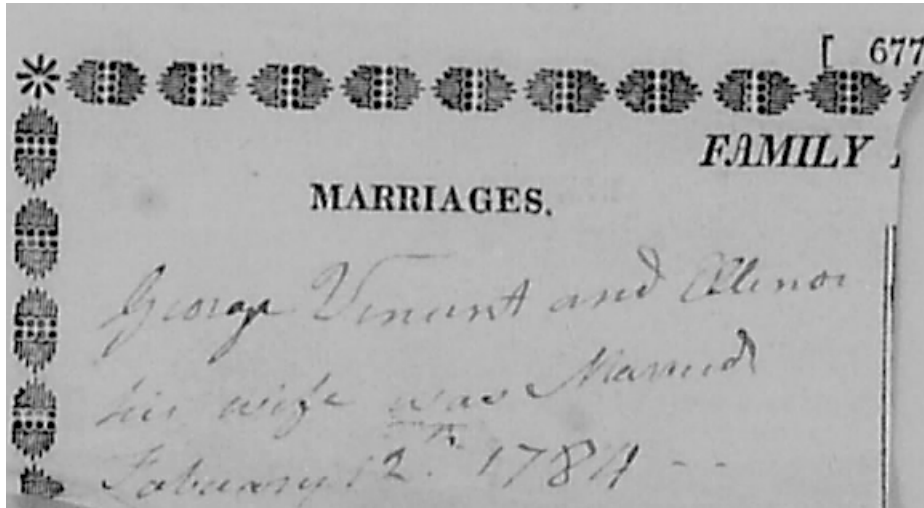 [ 677
FAMILY
MARRIAGES.
George Vincent and Ellenor
his wife was Married
Febuary 12th 1784 --